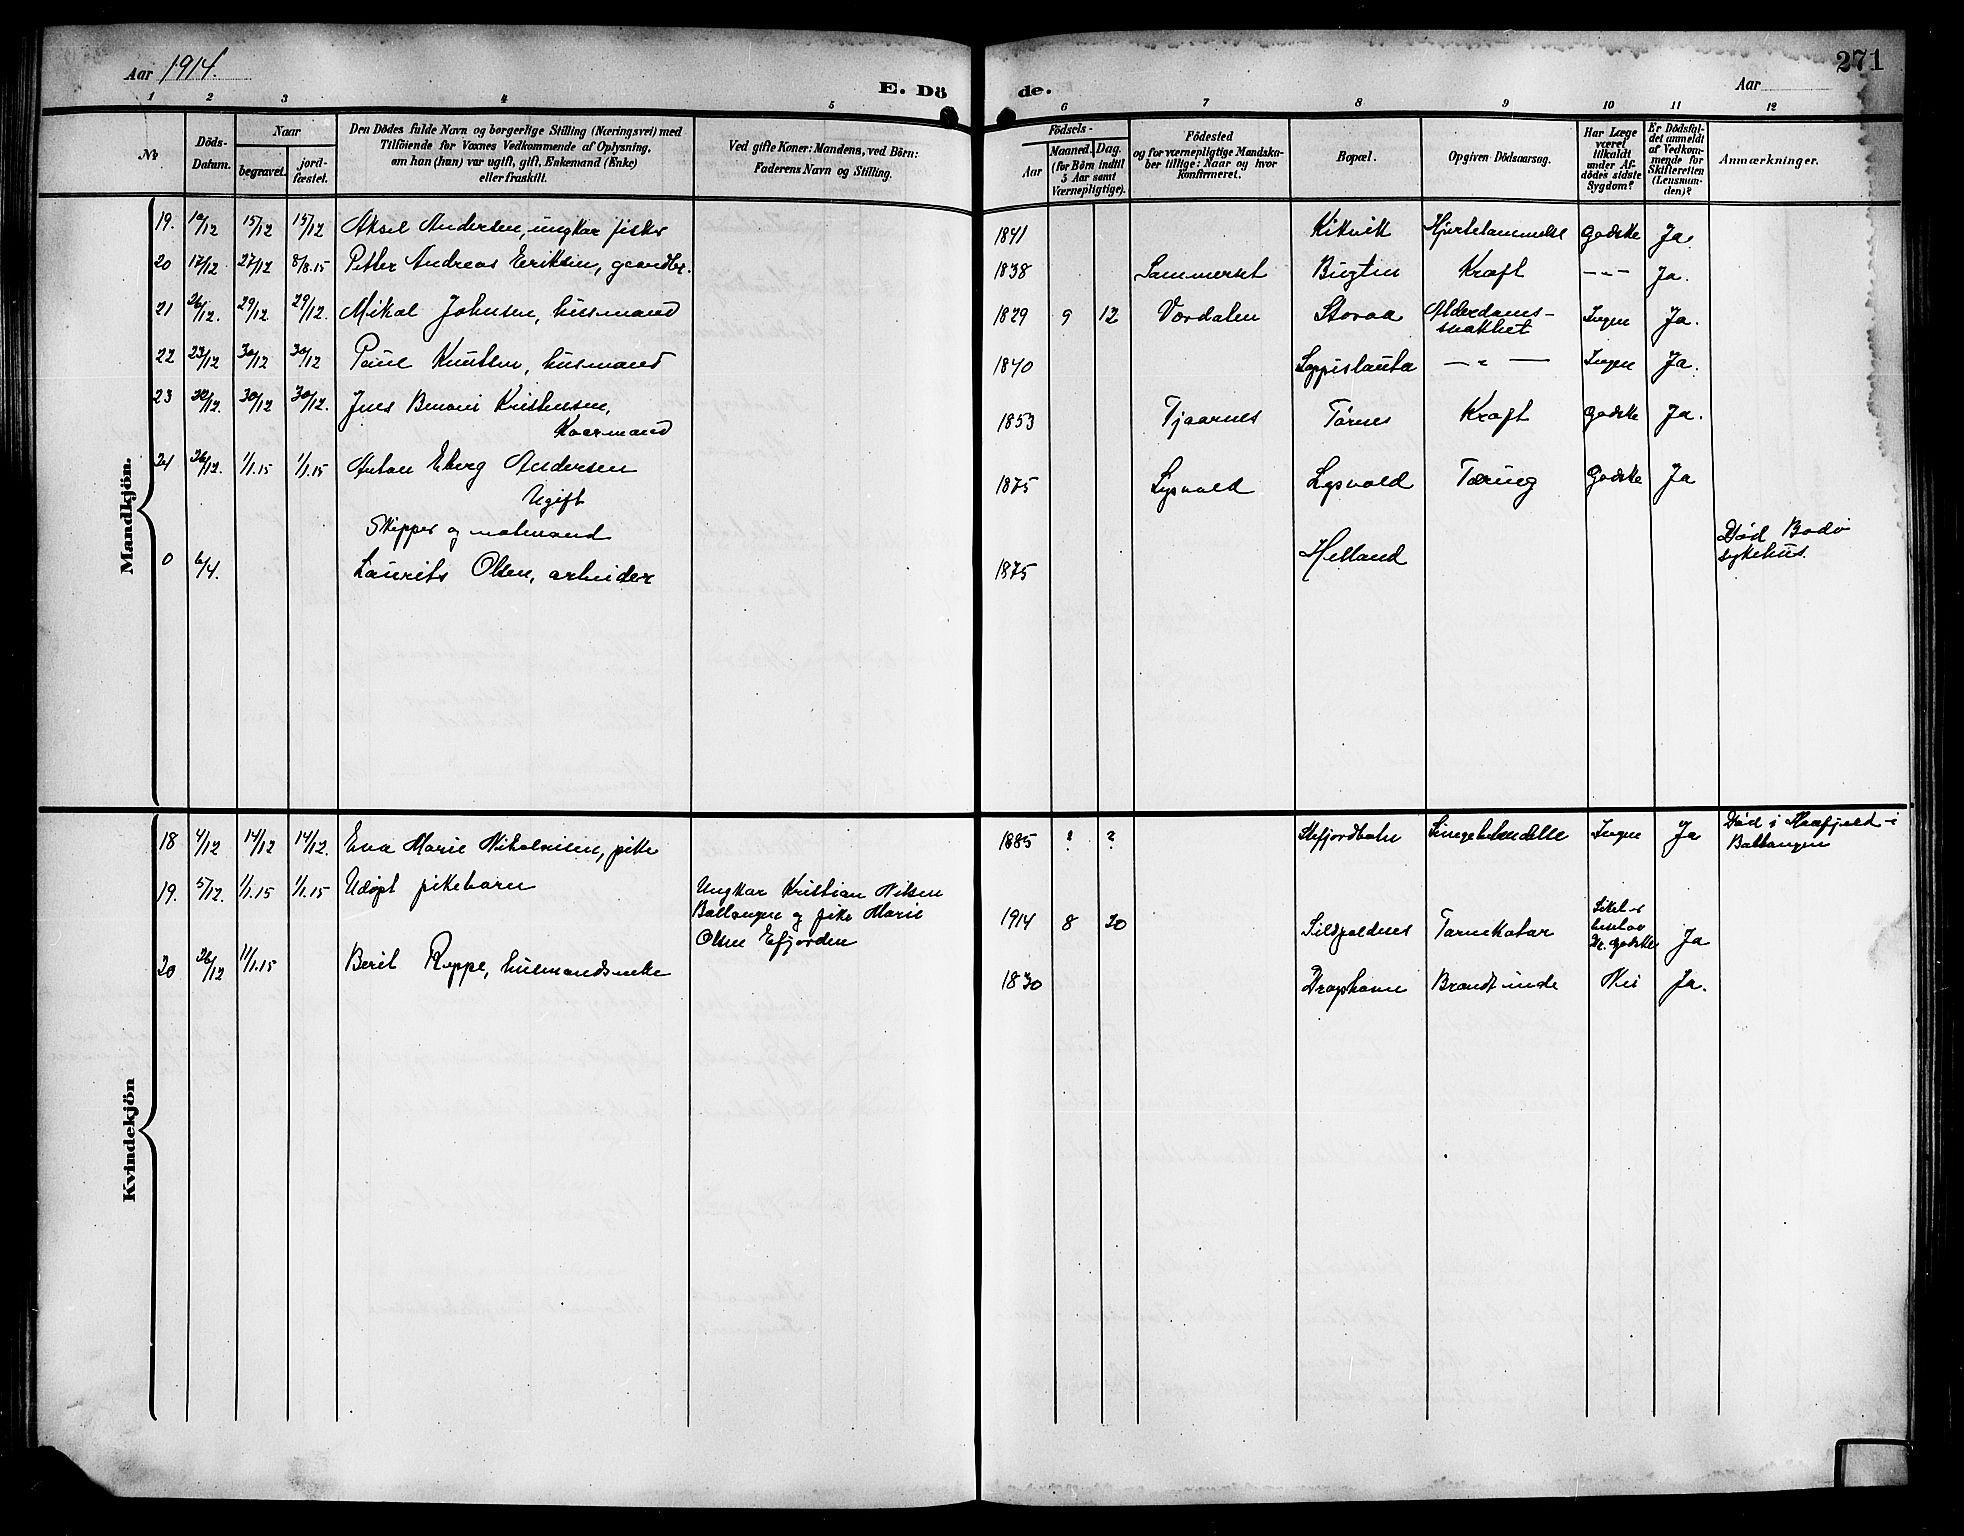 Aar 1914.
E. Dö
de.
Aar
271
1 2 3 4 5 6 7 8 9 10 11 12
No
Döds-
Datum.
Naar
begravet.
jord-
fæstet.
Den Dödes fulde Navn og borgerlige Stilling (Næringsvei) med
Tilföiende for Voxnes Vedkommende af Oplysning,
om han (hun) var ugift, gift, Enkemand (Enke)
eller fraskilt.
Ved gifte Koner: Mandens, ved Börn:
Faderens Navn og Stilling.
Födsels-
Aar
Maaned. Dag.
(for Börn indtil
5 Aar samt
Værnepligtige).
Födested
og for værnepligtige Mandska-
ber tillige: Naar og hvor
Konfirmeret.
Bopæl.
Opgiven Dödsaarsag.
Har Læge
været
tilkaldt
under Af-
dödes sidste
Sygdom?
Er Dödsfal-
det anmeldt
af Vedkom-
mende for
Skifteretten
(Lensman-
den)?
Anmærkninger.
Mandkjön.
19. 10/12 15/12 15/12 Aksel Andersen, ungkar fisker 1841 Kikvik Hjertelammelse Godske Ja.
20 17/12 27/12 8/8.15 Petter Andreas Eriksen, gaardbr. 1838 Sommerset Bugten Kræft -"- Ja.
21 26/12. 29/12 29/12. Mikal Johnsen, husmand 1829 9 12 Værdalen Storaa Alderdoms-
svakhet Ingen Ja.
22 23/12 30/12 30/12 Paul Knutsen, husmand 1840 Loppistauta — " — Ingen Ja.
23 30/12 30/12. Jens Benoni Kristensen,
Kaarmand 1853 Tjaarnes Tørnes Kræft Godske Ja.
24 26/12. 1/1.15 1/1.15 Anton Eberg Andersen
Ugift
Skipper og notmand 1875 Lysvold Lysvold Tæring Godske Ja
0 6/4. Laurits Olsen, arbeider 1875 Helland Død Bodø
sykehus.
Kvindekjön
18 4/12 14/12 14/12. Eva Marie Nikolaisen, pike 1885 ? ? Efjordbotn Ingen Ja Død i
Ballangen
19. 5/12. 1/1.15 1/1.15 Udøpt pikebarn Ungkar Kristian Nilsen
Ballangen og pike Marie
Olsen Efjorden 1914 8 20 Sildpoldnes Tarmkatar
Dr. Godske Ja
20 26/12 11/1.15 Berit Reppe, husmandsenke 1830 Dragshavn Brandt inde Nei Ja.